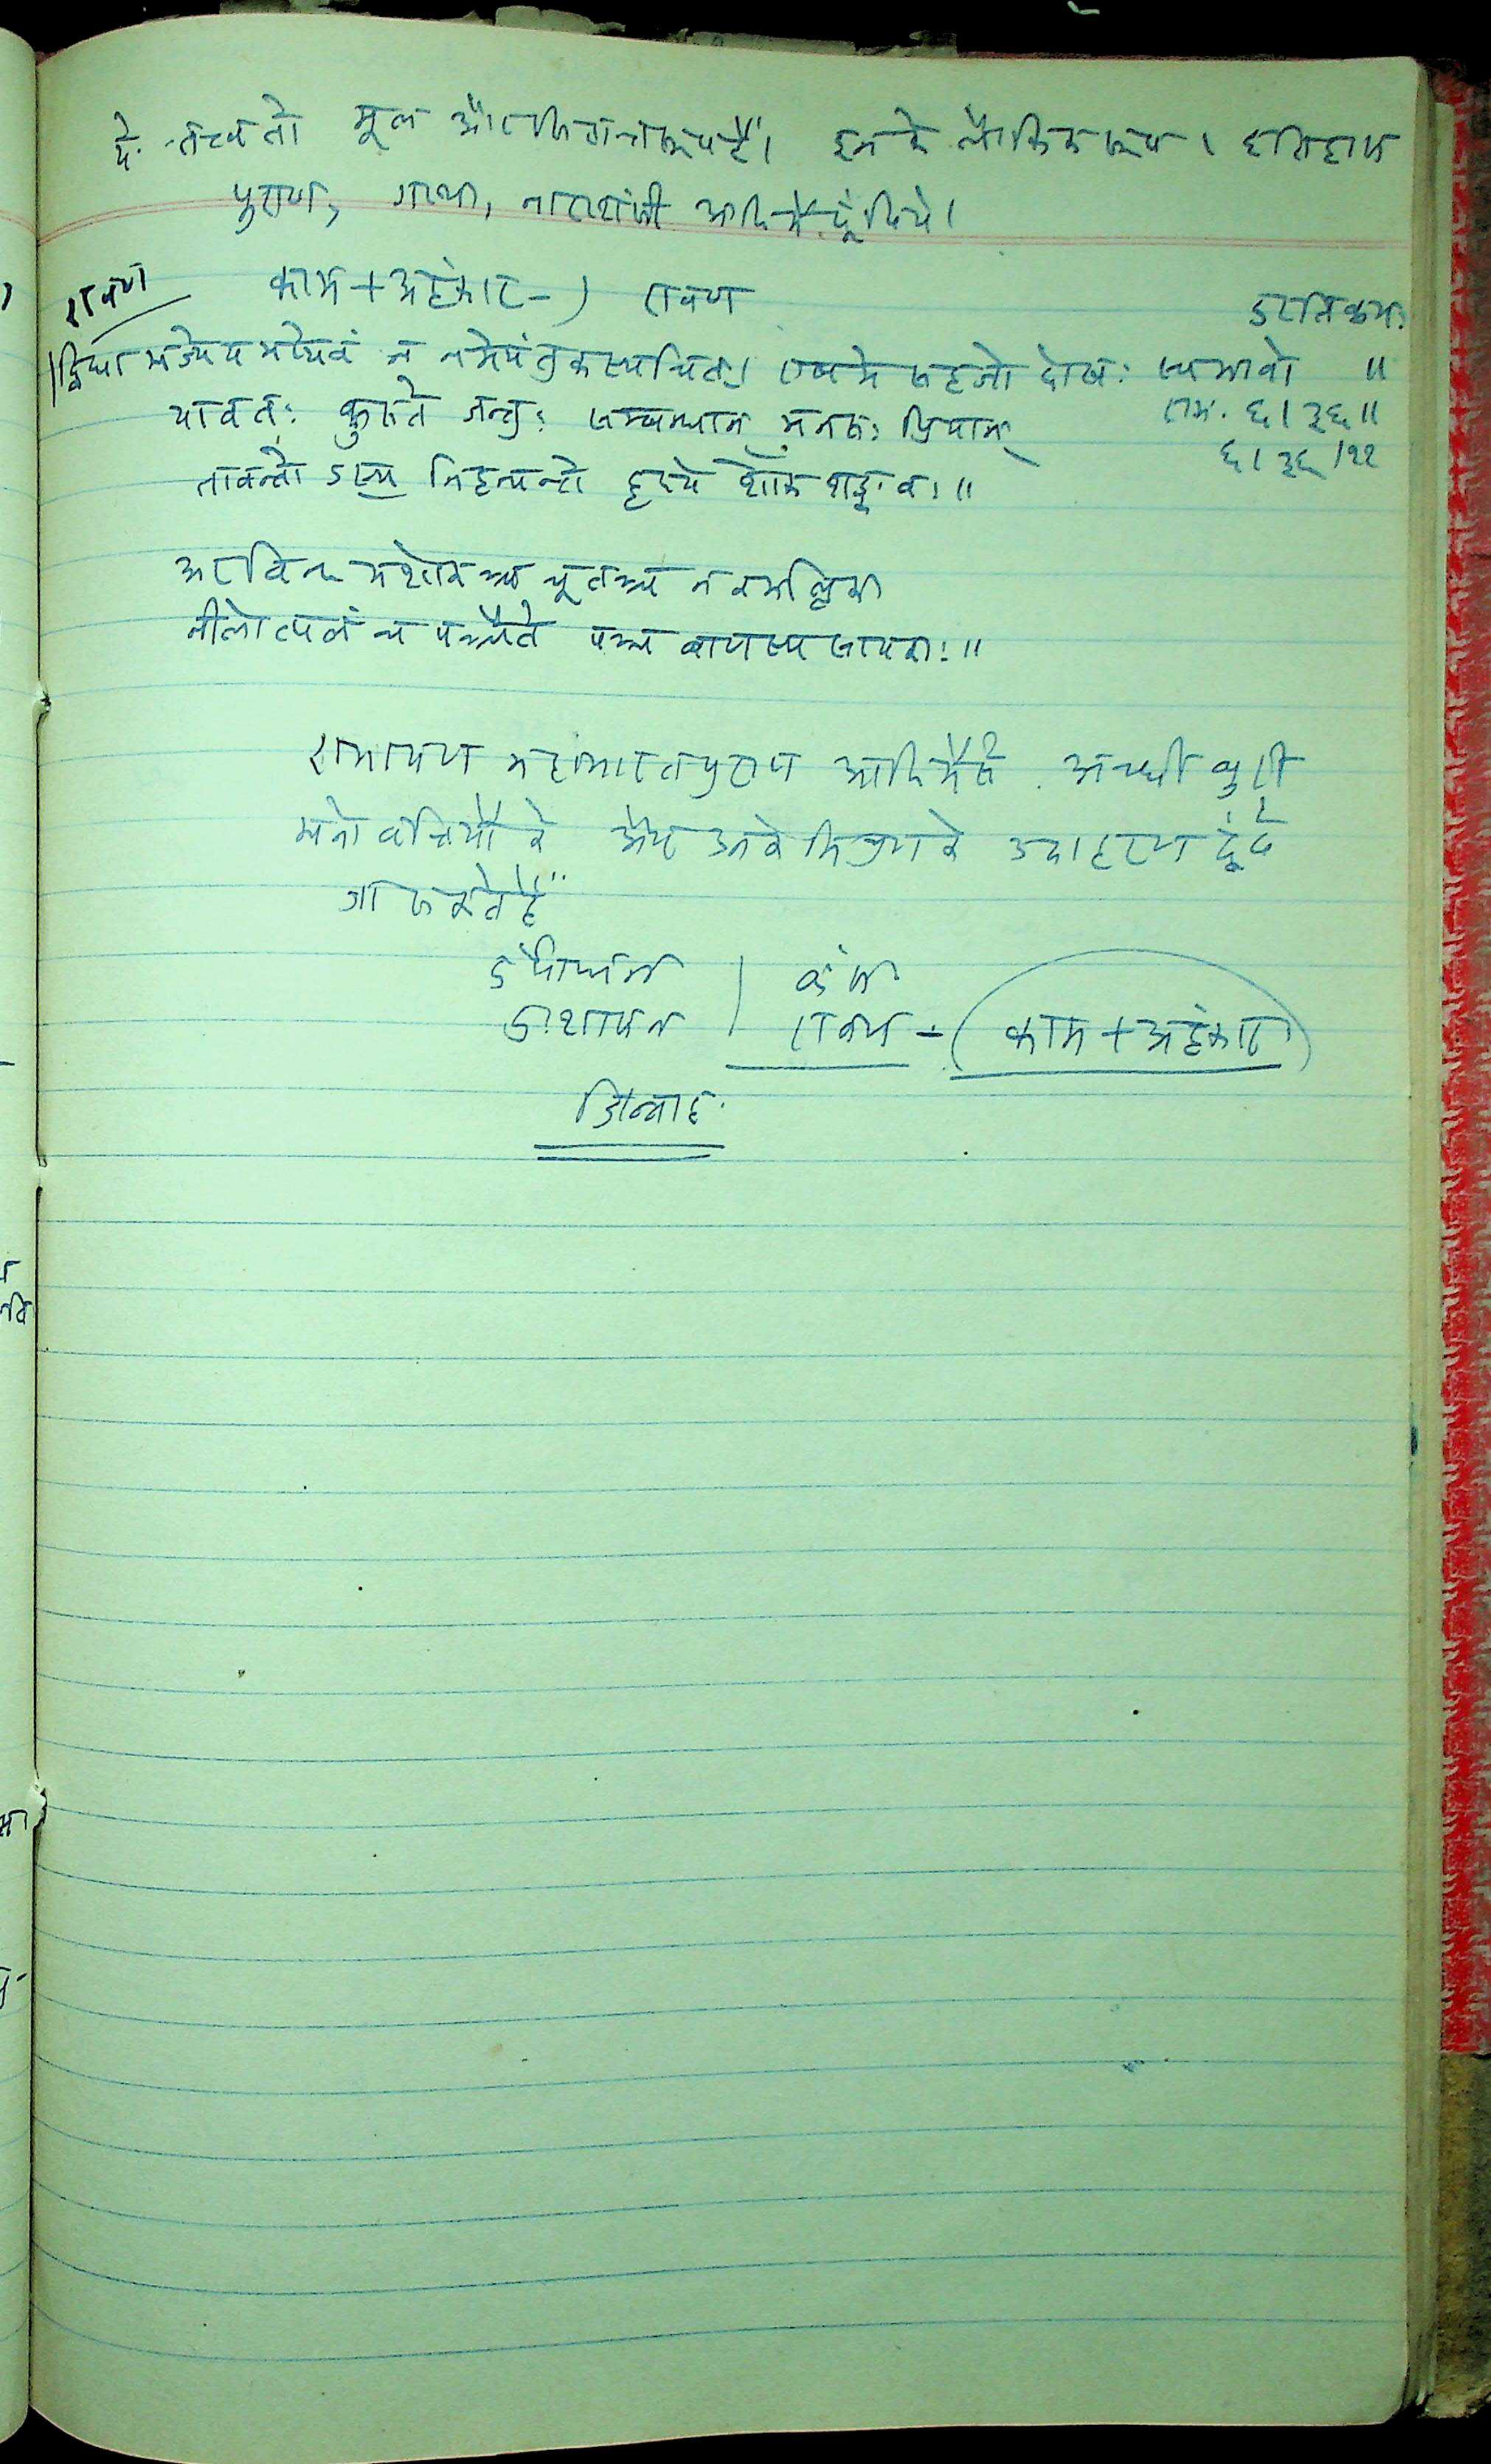 ये तत्व तो मूल और निराकार हैं। इनके लौकिक रूप। इतिहास
पुराण, गाथा, नाराशंसी आदि में ढूंढिये।
रावण
काम + अहंकार -) रावण
द्विधा भज्येय मप्येवं न नमेयं तु कस्यचित्। एष मे सहजो दोषः स्वभावो दुरतिक्रमः ॥
रामा. ६। ३६॥
६। ३६/११
यावतः कुरुते जन्तुः सम्बन्धान् मनसः प्रियान्
तावन्तो ऽस्य निहन्यन्ते हृदये शोकशङ्कवः॥
अरविन्दमशोकञ्च चूतञ्च नवमल्लिका
नीलोत्पलं च पञ्चैते पञ्चबाणस्य सायकाः॥
रामायण महाभारत पुराण आदि में से अच्छी बुरी
मनोवृत्तियों के और उनके के उदाहरण ढूंढे
जा सकते हैं
दुर्योधन | कंस
दुःशासन | रावण - (काम + अहंकार)